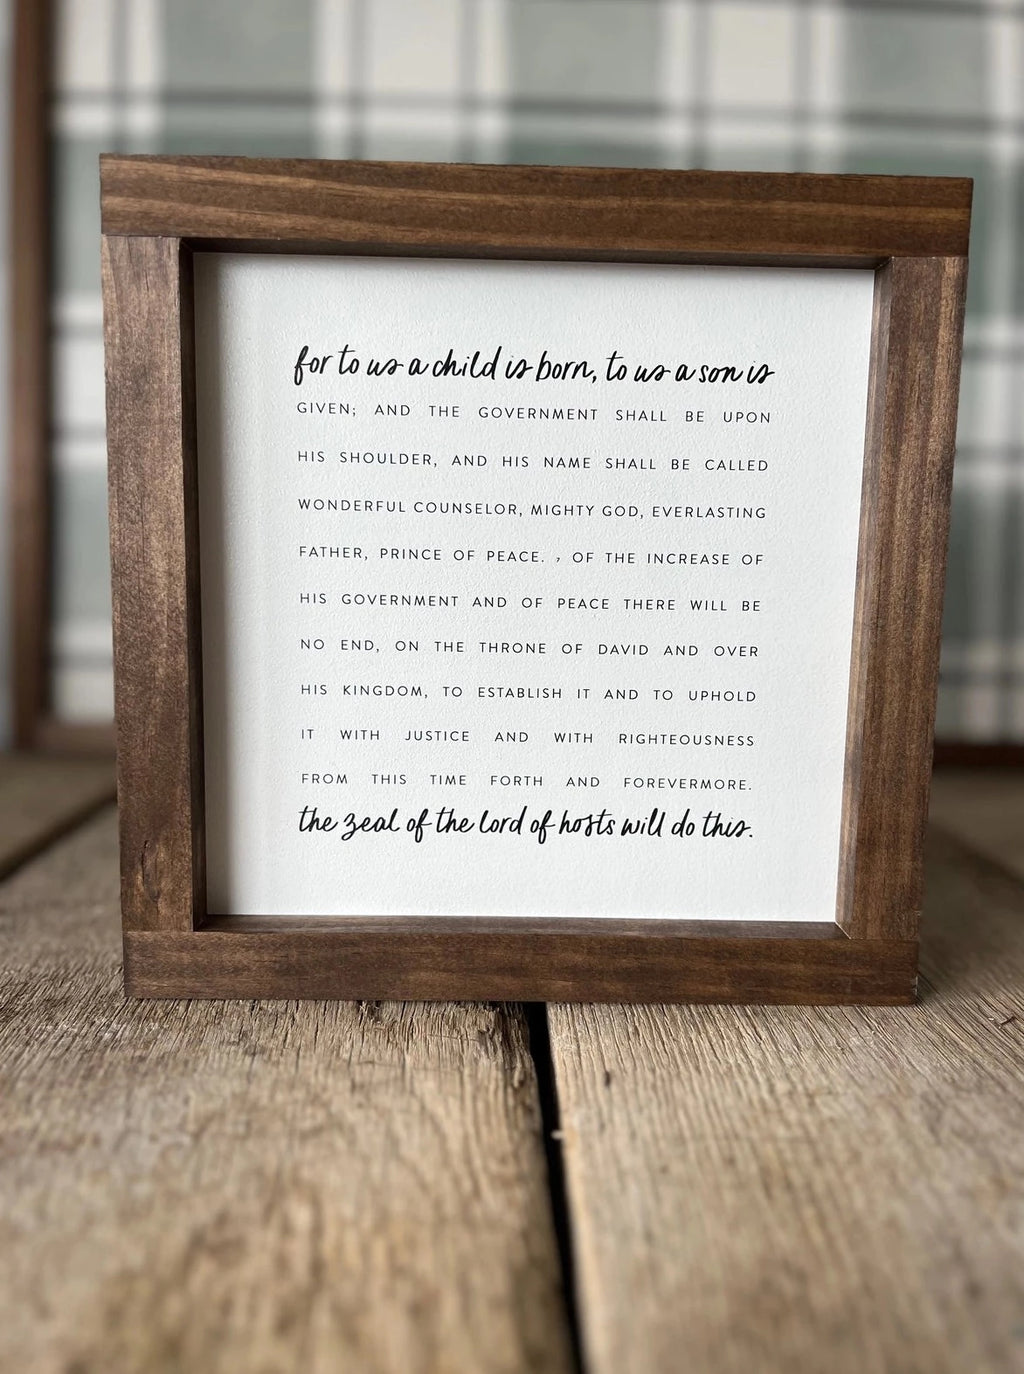 for to us a child is born, to us a son is
GIVEN; AND THE GOVERNMENT SHALL BE UPON
HIS SHOULDER, AND HIS NAME SHALL BE CALLED
WONDERFUL COUNSELOR, MIGHTY GOD, EVERLASTING
FATHER, PRINCE OF PEACE. , OF THE INCREASE OF
HIS GOVERNMENT AND OF PEACE THERE WILL BE
NO END, ON THE THRONE OF DAVID AND OVER
HIS KINGDOM, TO ESTABLISH IT AND TO UPHOLD
IT WITH JUSTICE AND WITH RIGHTEOUSNESS
FROM THIS TIME FORTH AND FOREVERMORE.
the zeal of the lord of hosts will do this.